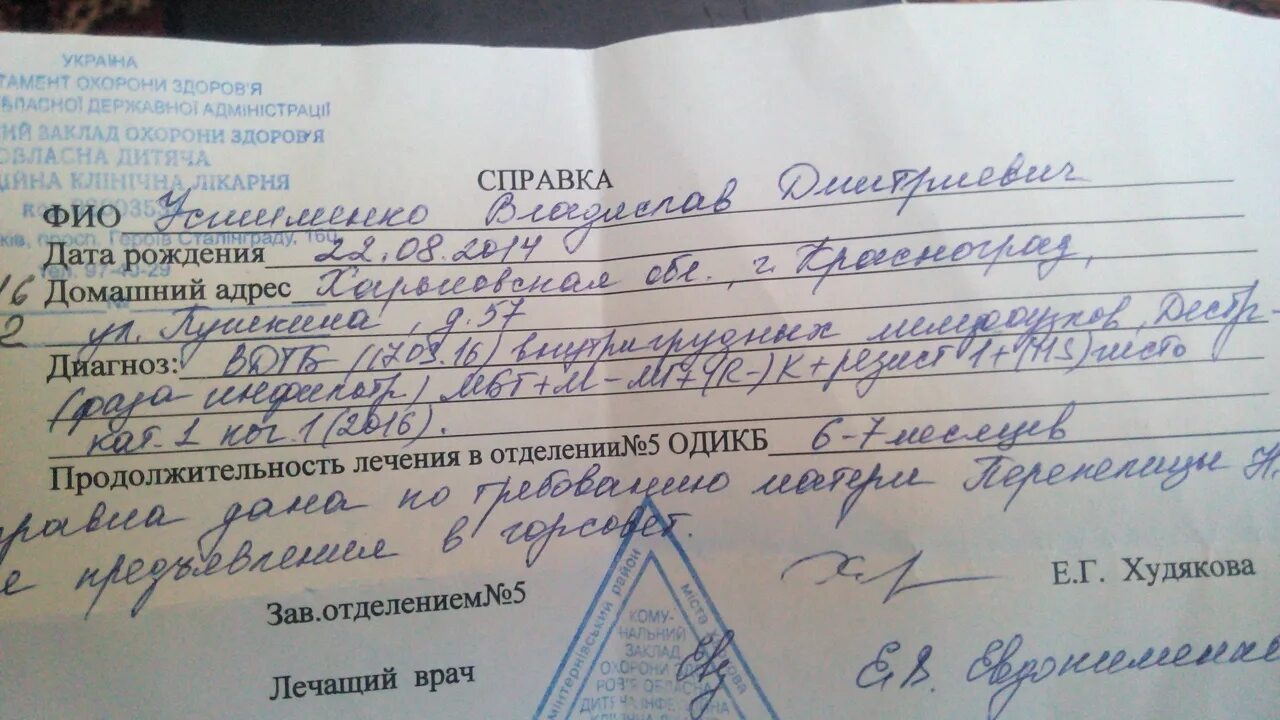 УКРАЇНА
ТАМЕНТ ОХОРОНИ ЗДОРОВ'Я
ОБЛАСНОЇ ДЕРЖАВНОЇ АДМІНІСТРАЦІЇ
ИЙ ЗАКЛАД ОХОРОНИ ЗДОРОВ'Я
ОБЛАСНА ДИТЯЧА
ЦІЙНА КЛІНІЧНА ЛІКАРНЯ
СПРАВКА
ФИО Устименко Владислав Дмитриевич
ків, просп. Героїв Сталінграду, 160
Дата рождения 22.08.2014
тел. 97-40-29
16 Домашний адрес Харьковская обл., г. Красноград,
2 ул. Пушкина, д.57
Диагноз: ВДТБ (17.03.16) внутригрудных лимфоузлов, Дестр-
(фаза инфильтр) МБТ+М-МГ+ (R-) К+резист 1+(HS) гисто
кат. 1 ког. 1 (2016).
Продолжительность лечения в отделении№5 ОДИКБ 6-7 месяцев
правка дана по требованию матери Перепелицы Н.
я предъявления в горсовет.
Зав.отделением№5 Е.Г. Худякова
Лечащий врач Е.В. Евдокименко
мінтернівський район
міста
КОМУ-
НАЛЬНИЙ
ЗАКЛАД
ОХОРОНИ ЗДО
РОВ'Я ОБЛАСНА
ДИТЯЧА ІНФЕ